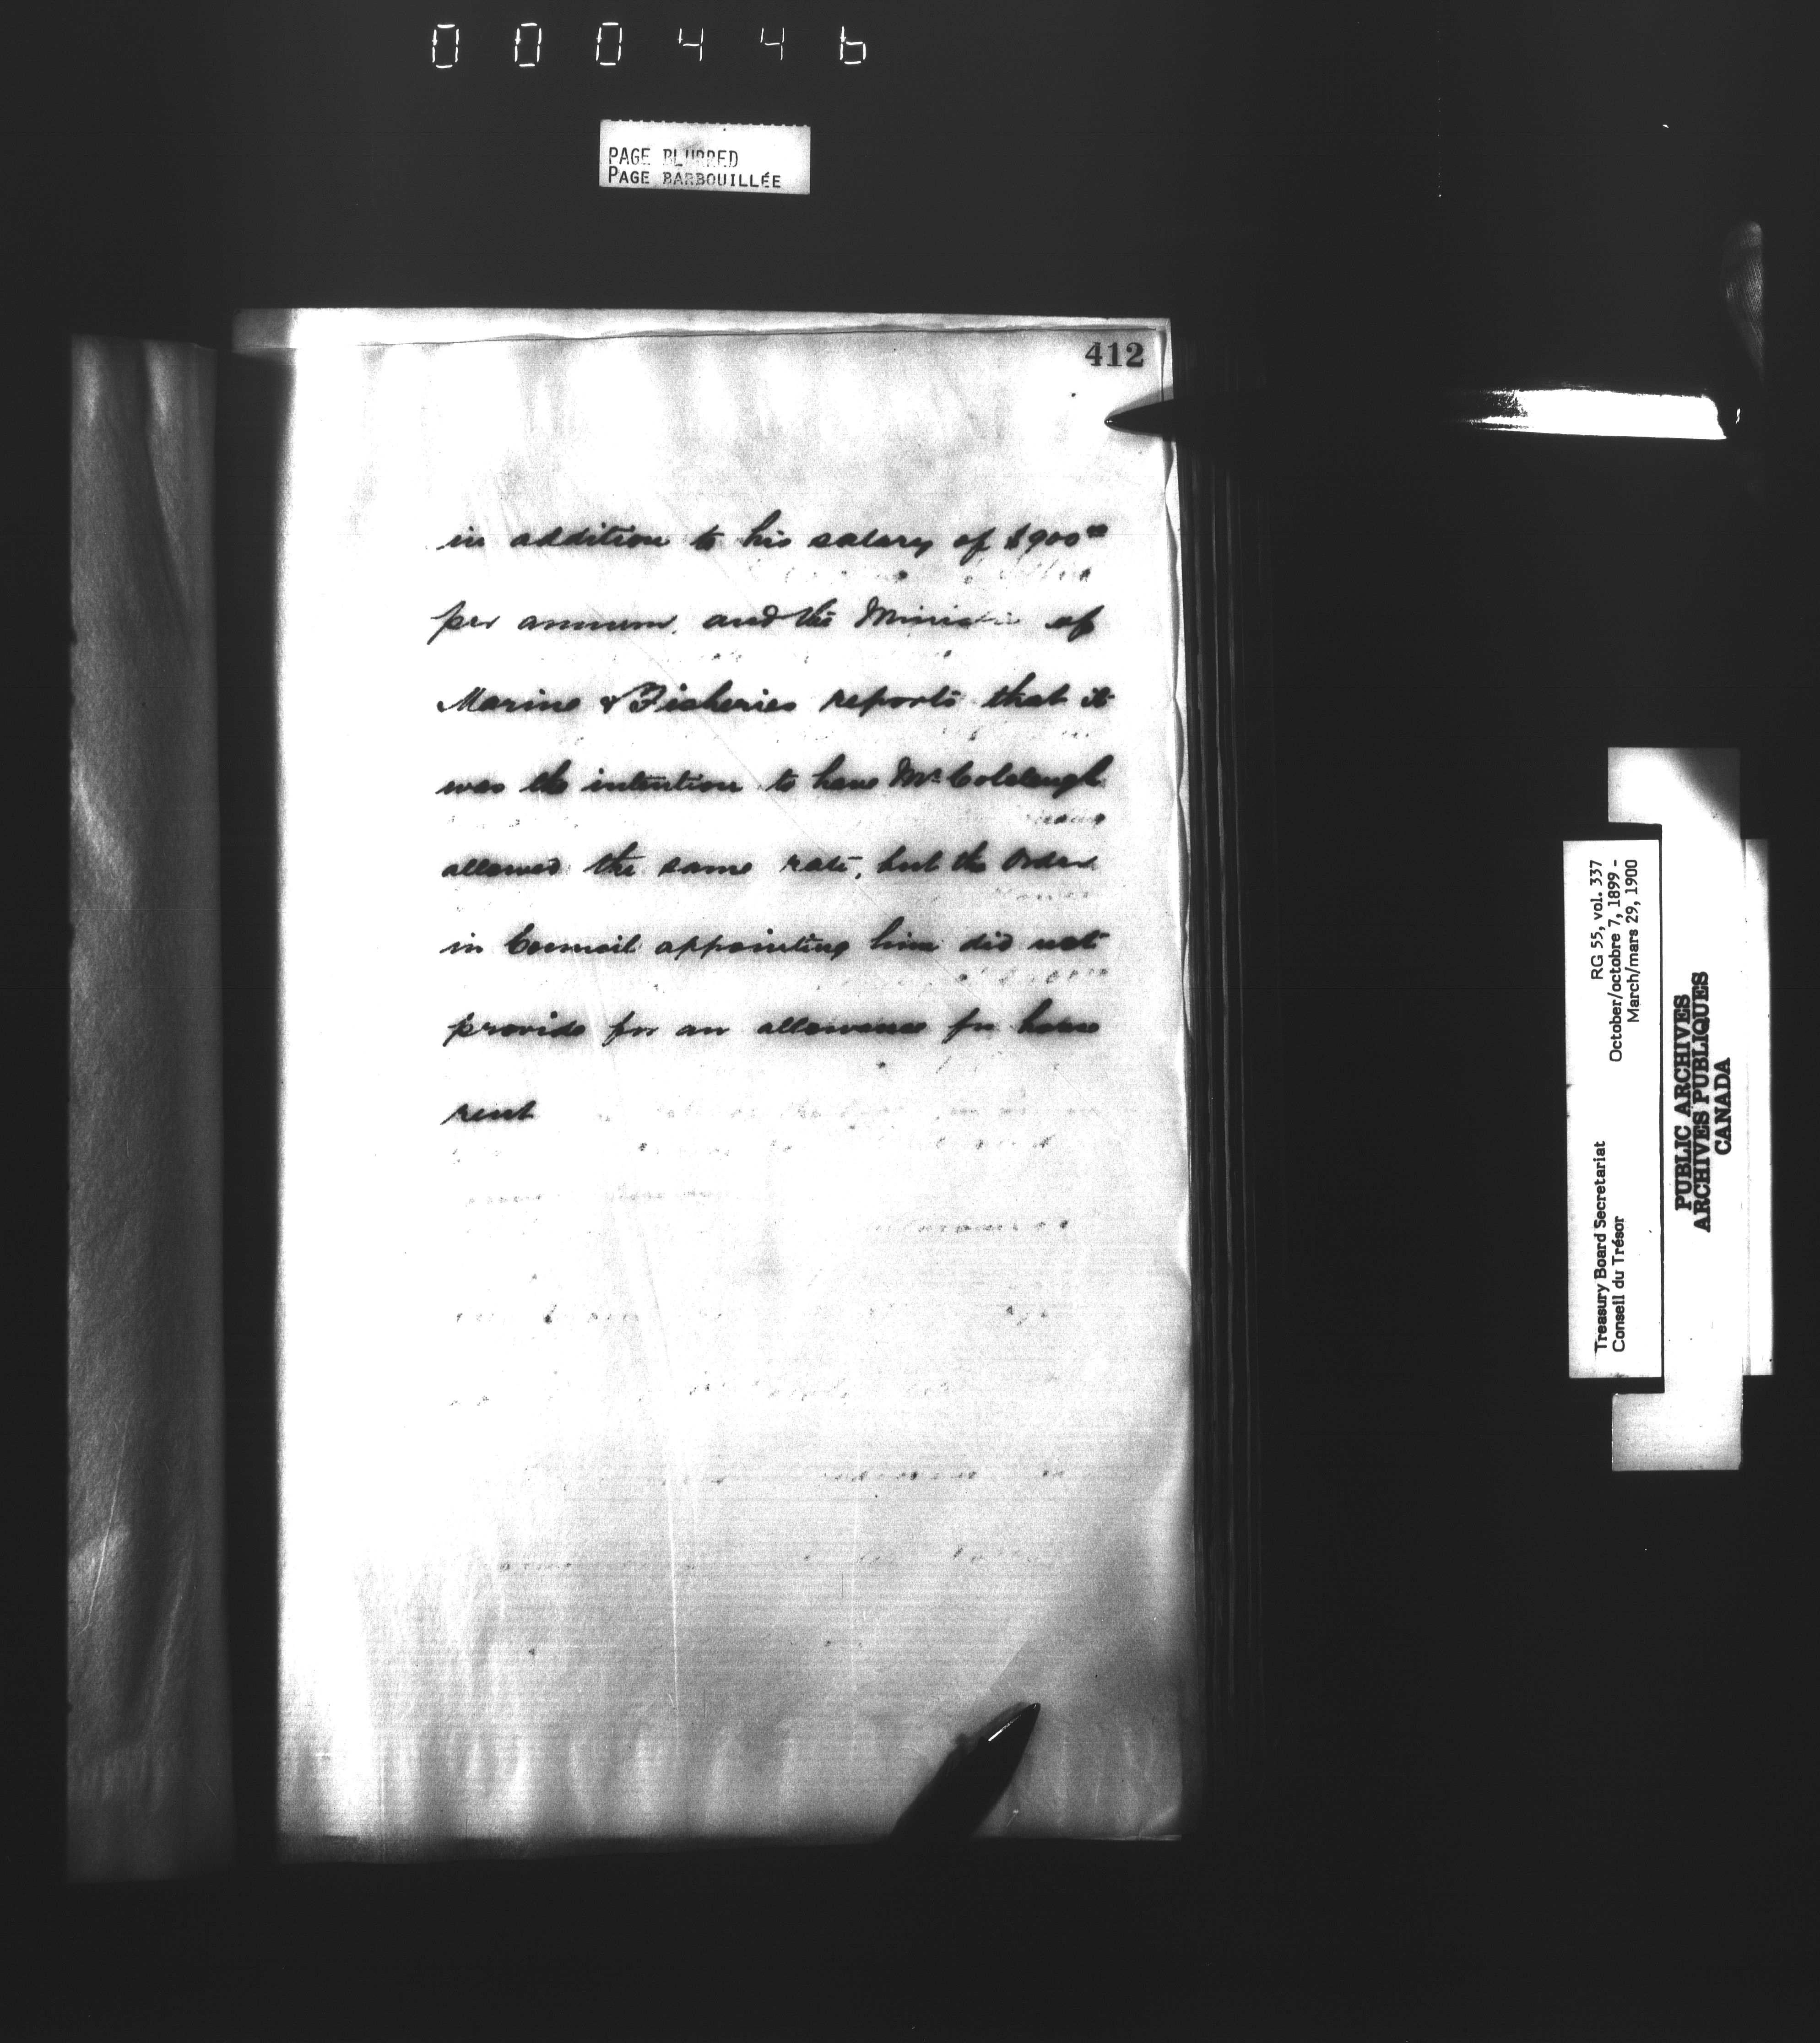 000446
PAGE BLURRED
PAGE BARBOUILLÉE
412
in addition to his salary of $900⁰⁰
per annum, and the Minister of
Marine & Fisheries reports that it
was the intention to have Mr
allowed the same rate, but the Order
in Council appointing him did not
provide for an allowance for house
rent
RG 55, vol. 337
October/octobre 7, 1899 -
March/mars 29, 1900
Treasury Board Secretariat
Conseil du Trésor
PUBLIC ARCHIVES
ARCHIVES PUBLIQUES
CANADA